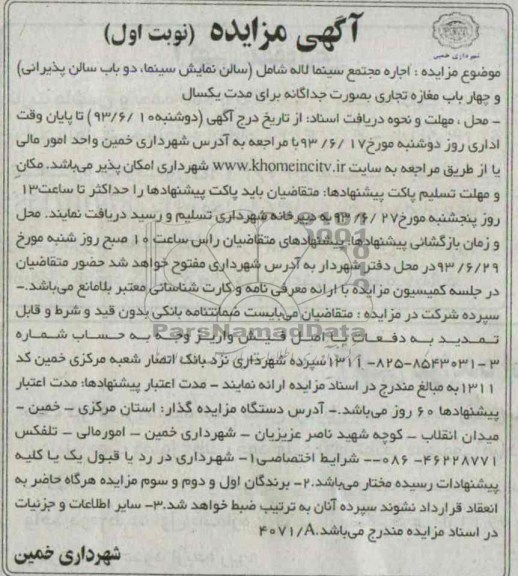 آگهی مزایده (نوبت اول)
شهرداری خمین
موضوع مزایده : اجاره مجتمع سینما لاله شامل (سالن نمایش سینما، دو باب سالن پذیرائی)
و چهار باب مغازه تجاری بصورت جداگانه برای مدت یکسال
- محل ، مهلت و نحوه دریافت اسناد: از تاریخ درج آگهی (دوشنبه۱۰ /۹۳/۶) تا پایان وقت
اداری روز دوشنبه مورخ۱۷ /۶/ ۹۳با مراجعه به آدرس شهرداری خمین واحد امور مالی
یا از طریق مراجعه به سایت www.khomeincity.ir شهرداری امکان پذیر می‌باشد. مکان
و مهلت تسلیم پاکت پیشنهادها: متقاضیان باید پاکت پیشنهادها را حداکثر تا ساعت۱۳
روز پنجشنبه مورخ۲۷ /۶/ ۹۳ به دبیرخانه شهرداری تسلیم و رسید دریافت نمایند. محل
و زمان بازگشائی پیشنهادها: پیشنهادهای متقاضیان راس ساعت ۱۰ صبح روز شنبه مورخ
۹۳/۶/۲۹در محل دفتر شهردار به آدرس شهرداری مفتوح خواهد شد حضور متقاضیان
در جلسه کمیسیون مزایده با ارائه معرفی نامه و کارت شناسائی معتبر بلامانع می‌باشد.-
سپرده شرکت در مزایده : متقاضیان می‌بایست ضمانتنامه بانکی بدون قید و شرط و قابل
تمدید به دفعات یا اصل فیش واریز وجه به حساب شماره
۳-۸۵۴۳۰۳۱-۸۲۵-۱۳۱۱سپرده شهرداری نزد بانک انصار شعبه مرکزی خمین کد
۱۳۱۱به مبالغ مندرج در اسناد مزایده ارائه نمایند - مدت اعتبار پیشنهادها: مدت اعتبار
پیشنهادها ۶۰ روز می‌باشد.- آدرس دستگاه مزایده گذار: استان مرکزی - خمین -
میدان انقلاب - کوچه شهید ناصر عزیزیان - شهرداری خمین - امورمالی - تلفکس
۴۶۲۲۸۷۷۱-۰۸۶-- شرایط اختصاصی۱- شهرداری در رد یا قبول یک یا کلیه
پیشنهادات رسیده مختار می‌باشد.۲- برندگان اول و دوم و سوم مزایده هرگاه حاضر به
انعقاد قرارداد نشوند سپرده آنان به ترتیب ضبط خواهد شد.۳- سایر اطلاعات و جزئیات
در اسناد مزایده مندرج می‌باشد.۴۰۷۱/A
شهرداری خمین
ParsNamadData